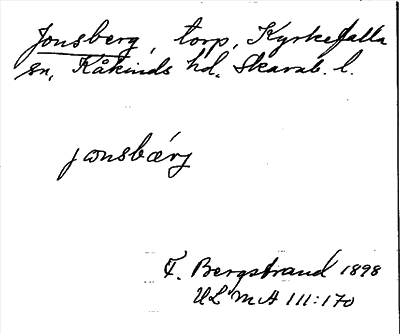 Jonsberg, torp, Kyrkefalla
sn, Kåkinds hd. Skarab. l.
jonsbærj
F. Bergstrand 1898
ULMA 111:170